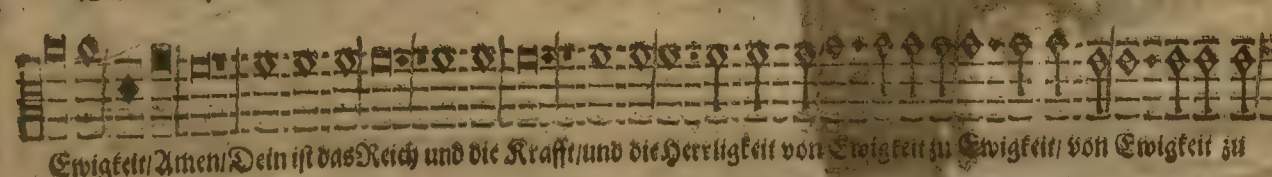 Ewigkeit/Amen/Dein ist das Reich und die Krafft/und die Herrligkeit von Ewigkeit zu Ewigkeit/ von Ewigkeit zu